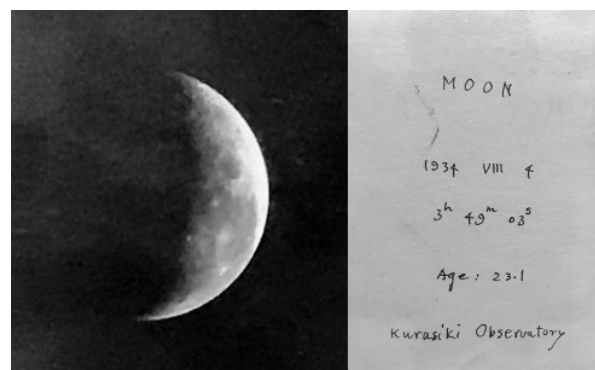 MOON
1934 VIII 4
3h 49m 03s
Age: 23.1
Kurasiki Observatory